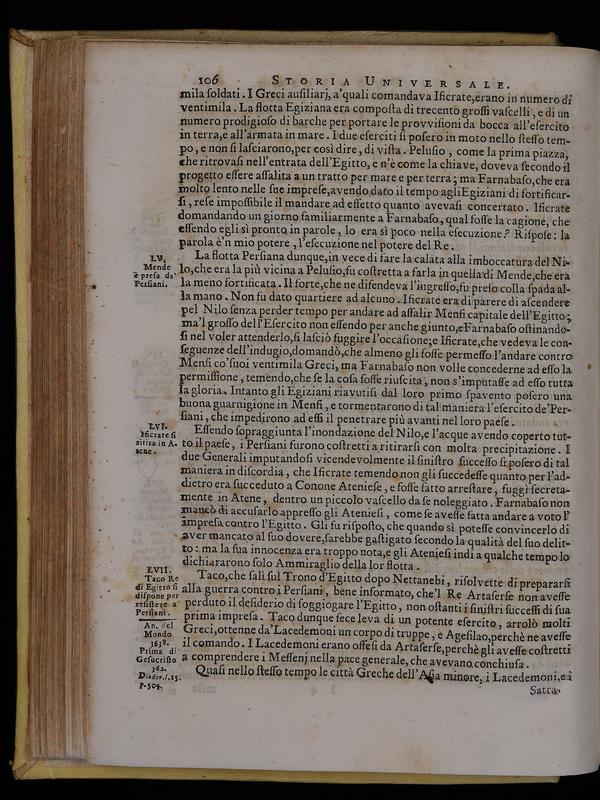 106 STORIA UNIVERSALE.
mila ſoldati. I Greci auſiliarj, a'quali comandava Ificrate, erano in numero di
ventimila. La flotta Egiziana era compoſta di trecento groſſi vaſcelli, e di un
numero prodigioſo di barche per portare le provviſioni da bocca all'eſercito
in terra, e all'armata in mare. I due eſerciti ſi poſero in moto nello ſteſſo tem-
po, e non ſi laſciarono, per così dire, di viſta. Peluſio, come la prima piazza,
che ritrovaſi nell'entrata dell'Egitto, e n'è come la chiave, doveva ſecondo il
progetto eſſere aſſalita a un tratto per mare e per terra; ma Farnabaſo, che era
molto lento nelle ſue impreſe, avendo dato il tempo agli Egiziani di fortificar-
ſi, reſe impoſſibile il mandare ad effetto quanto avevaſi concertato. Ificrate
domandando un giorno familiarmente a Farnabaſo, qual foſſe la cagione, che
eſſendo egli sì pronto in parole, lo era sì poco nella eſecuzione? Riſpoſe: la
parola è'n mio potere, l'eſecuzione nel potere del Re.
LV.
Mende
è preſa da'
Perſiani.
La flotta Perſiana dunque, in vece di fare la calata alla imboccatura del Ni-
lo, che era la più vicina a Peluſio, fu coſtretta a farla in quella di Mende, che era
la meno fortificata. Il forte, che ne difendeva l'ingreſſo, fu preſo colla ſpada al-
la mano. Non fu dato quartiere ad alcuno. Ificrate era di parere di aſcendere
pel Nilo ſenza perder tempo per andare ad aſſalir Menfi capitale dell'Egitto;
ma'l groſſo dell'Eſercito non eſſendo per anche giunto, e Farnabaſo oſtinando-
ſi nel voler attenderlo, ſi laſciò fuggire l'occaſione; e Ificrate, che vedeva le con-
ſeguenze dell'indugio, domandò, che almeno gli foſſe permeſſo l'andare contro
Menfi co'ſuoi ventimila Greci, ma Farnabaſo non volle concederne ad eſſo la
permiſſione, temendo, che ſe la coſa foſſe riuſcita, non s'imputaſſe ad eſſo tutta
la gloria. Intanto gli Egiziani riavutiſi dal loro primo ſpavento poſero una
buona guarnigione in Menfi, e tormentarono di tal maniera l'eſercito de'Per-
ſiani, che impedirono ad eſſi il penetrare più avanti nel loro paeſe.
LVI.
Ificrate ſi
ritira in A-
tene.
Eſſendo ſopraggiunta l'inondazione del Nilo, e l'acque avendo coperto tut-
to il paeſe, i Perſiani furono coſtretti a ritirarſi con molta precipitazione. I
due Generali imputandoſi vicendevolmente il ſiniſtro ſucceſſo ſi poſero di tal
maniera in diſcordia, che Ificrate temendo non gli ſuccedeſſe quanto per l'ad-
dietro era ſucceduto a Conone Atenieſe, e foſſe fatto arreſtare, fuggì ſecreta-
mente in Atene, dentro un piccolo vaſcello da ſe noleggiato. Farnabaſo non
mancò di accuſarlo appreſſo gli Atenieſi, come ſe aveſſe fatta andare a voto l'
impreſa contro l'Egitto. Gli fu riſpoſto, che quando ſi poteſſe convincerlo di
aver mancato al ſuo dovere, ſarebbe gaſtigato ſecondo la qualità del ſuo delit-
to: ma la ſua innocenza era troppo nota, e gli Atenieſi indi a qualche tempo lo
dichiararono ſolo Ammiraglio della lor flotta.
LVII.
Taco Re
di Egitto ſi
diſpone per
reſiſtere a'
Perſiani.
An. del
Mondo
3638.
Prima di
Geſucriſto
362.
Diodor. l. 15.
p. 504.
Taco, che ſalì ſul Trono d'Egitto dopo Nettanebi, riſolvette di prepararſi
alla guerra contro i Perſiani, bene informato, che'l Re Artaſerſe non aveſſe
perduto il deſiderio di ſoggiogare l'Egitto, non oſtanti i ſiniſtri ſucceſſi di ſua
prima impreſa. Taco dunque fece leva di un potente eſercito, arrolò molti
Greci, ottenne da'Lacedemoni un corpo di truppe, e Ageſilao, perchè ne aveſſe
il comando. I Lacedemoni erano offeſi da Artaſerſe, perchè gli aveſſe coſtretti
a comprendere i Meſſenj nella pace generale, che avevano conchiuſa.
Quaſi nello ſteſſo tempo le città Greche dell'Aſia minore, i Lacedemoni, e i
Satra-